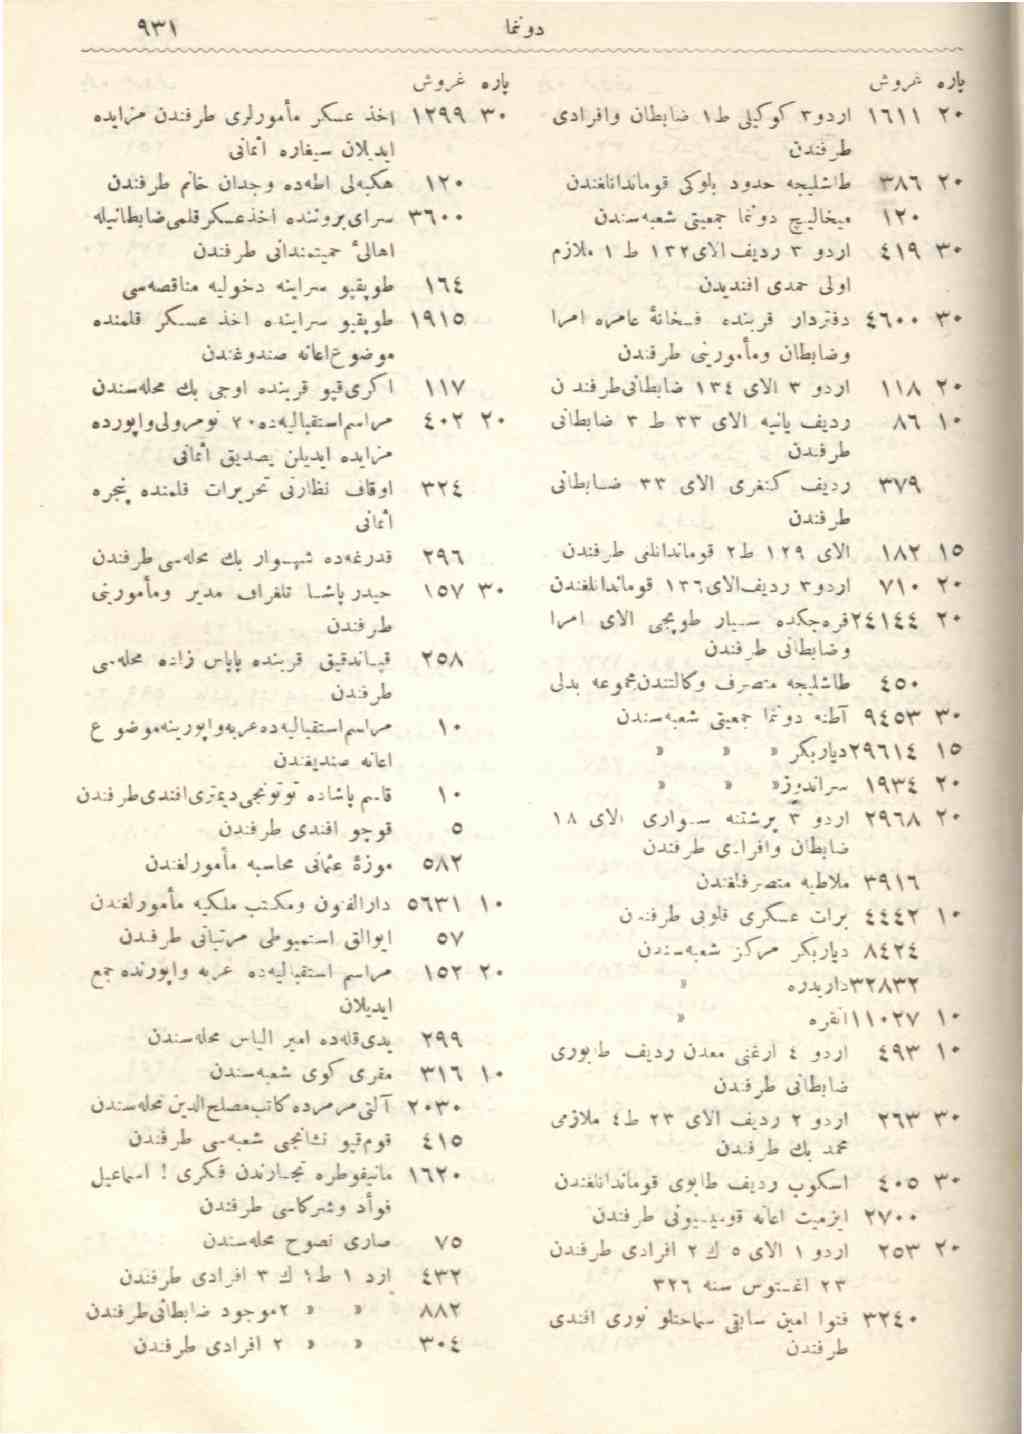 دونما
٩٣١
پاره غروش
٢٠ ١٦١١ اردو٣ كوكيلى ط١ ضابطان وافرادى
طرفندن
٢٠ ٣٨٦ طاشليجه حدود بلوكى قوماندانلغندن
١٢٠ ميخاليچ دونما جمعيتى شعبه‌سندن
٣٠ ٤١٩ اردو ٣ رديف الاى١٣٢ ط ١ ملازم
اولى حمدى افنديدن
٣٠ ٤٦٠٠ دفتردار قربنده فسخانۀ عامره امرا
وضابطان ومأمورينى طرفندن
٢٠ ١١٨ اردو ٣ الاى ١٣٤ ضابطانى طرفندن
١٠ ٨٦ رديف يانيه الاى ٣٣ ط ٣ ضابطانى
طرفندن
٣٧٩ رديف كنغرى الاى ٣٣ ضابطانى
طرفندن
١٥ ١٨٢ الاى ١٢٩ ط٢ قوماندانلغى طرفندن
٢٠ ٧١٠ اردو٣ رديف الاى١٣٦ قوماندانلغندن
٢٠ ٢٤١٤٤ قره‌جكده سيار طوپجى الاى امرا
وضابطانى طرفندن
٤٥٠ طاشليجه متصرف وكالتندن مجموعه بدلى
٣٠ ٩٤٥٣ آطنه دونما جمعيتى شعبه‌سندن
١٥ ٢٩٦١٤ دياربكر » » »
٢٠ ١٩٣٤ سراندوز » » »
٢٠ ٢٩٦٨ اردو ٣ پرشتنه سوارى الاى ١٨
ضابطان وافرادى طرفندن
٣٩١٦ ملاطيه متصرفلغندن
١٠ ٤٤٤٢ برات عسكرى قلوبى طرفندن
٨٤٢٤ دياربكر مركز شعبه‌سندن
٣٢٨٣٢ داريدره »
١٠ ١١٠٢٧ انقره »
١٠ ٤٩٣ اردو ٤ ارغنى معدن رديف طابورى
ضابطانى طرفندن
٣٠ ٢٦٣ اردو ٢ رديف الاى ٢٣ ط٤ ملازمى
محمد بك طرفندن
٣٠ ٤٠٥ اسكوب رديف طابورى قوماندانلغندن
٢٧٠٠ ايزميت اعانه قوميسيونى طرفندن
٢٠ ٢٥٣ اردو ١ الاى ٥ ك ٢ افرادى طرفندن
٢٣ اغستوس سنه ٣٢٦
٣٢٤٠ فتوا امين سابقى سماحتلو نورى افندى
طرفندن
پاره غروش
٣٠ ١٢٩٩ اخذ عسكر مأمورلرى طرفندن مزايده
ايديلان سيغاره اثمانى
١٢٠ هكبه‌لى اطه‌ده وجدان خانم طرفندن
٣٦٠٠ سراى برونده اخذعسكرقلمى ضابطانيله
اهالئ حميتمندانى طرفندن
١٦٤ طوپقپو سراينه دخوليه مناقصه‌سى
١٩١٥ طوپقپو سراينده اخذ عسكر قلمنده
موضوع اعانه صندوغندن
١١٧ اكرى‌قپو قربنده اوجى بك محله‌سندن
٢٠ ٤٠٢ مراسم استقباليه‌ده ٢٠ نومرولى واپورده
مزايده ايديلن يصديق اثمانى
٣٢٤ اوقاف نظارتى تحريرات قلمنده پنجره
اثمانى
٢٩٦ قدرغه‌ده شهسوار بك محله‌سى طرفندن
٣٠ ١٥٧ حيدر پاشا تلغراف مدير ومأمورينى
طرفندن
٢٥٨ قپاندقيق قربنده پاپاس زاده محله‌سى
طرفندن
١٠ مراسم استقباليه‌ده عربه واپورينه موضوع
اعانه صنديغندن
١٠ قاسم پاشاده توتونجى ديمترى افندى طرفندن
٥ قوچو افندى طرفندن
٥٨٢ موزۀ عثمانى محاسبه مأمورلغندن
١٠ ٥٦٣١ دارالفنون ومكتب ملكيه مأمورلغندن
٥٧ ايوالق استمبوطى مرتباتى طرفندن
٢٠ ١٥٢ مراسم استقباليه‌ده عربه واپورنده جمع
ايديلان
٢٩٩ يدى‌قله‌ده امير الياس محله‌سندن
١٠ ٣١٦ مقرى كوى شعبه‌سندن
٢٠٣٠ آلتى مرمرده كاتب مصلح‌الدين محله‌سندن
٤١٥ قوم‌قپو نشانجى شعبه‌سى طرفندن
١٦٢٠ مانيفوطره تجارندن فكرى ! اسماعيل
فوأد وشركاسى طرفندن
٧٥ صارى نصوح محله‌سندن
٤٣٢ ازد ١ ط١ ك ٣ افرادى طرفندن
٨٨٢ » » ٢موجود ضابطانى طرفندن
٣٠٤ » » ٢ افرادى طرفندن